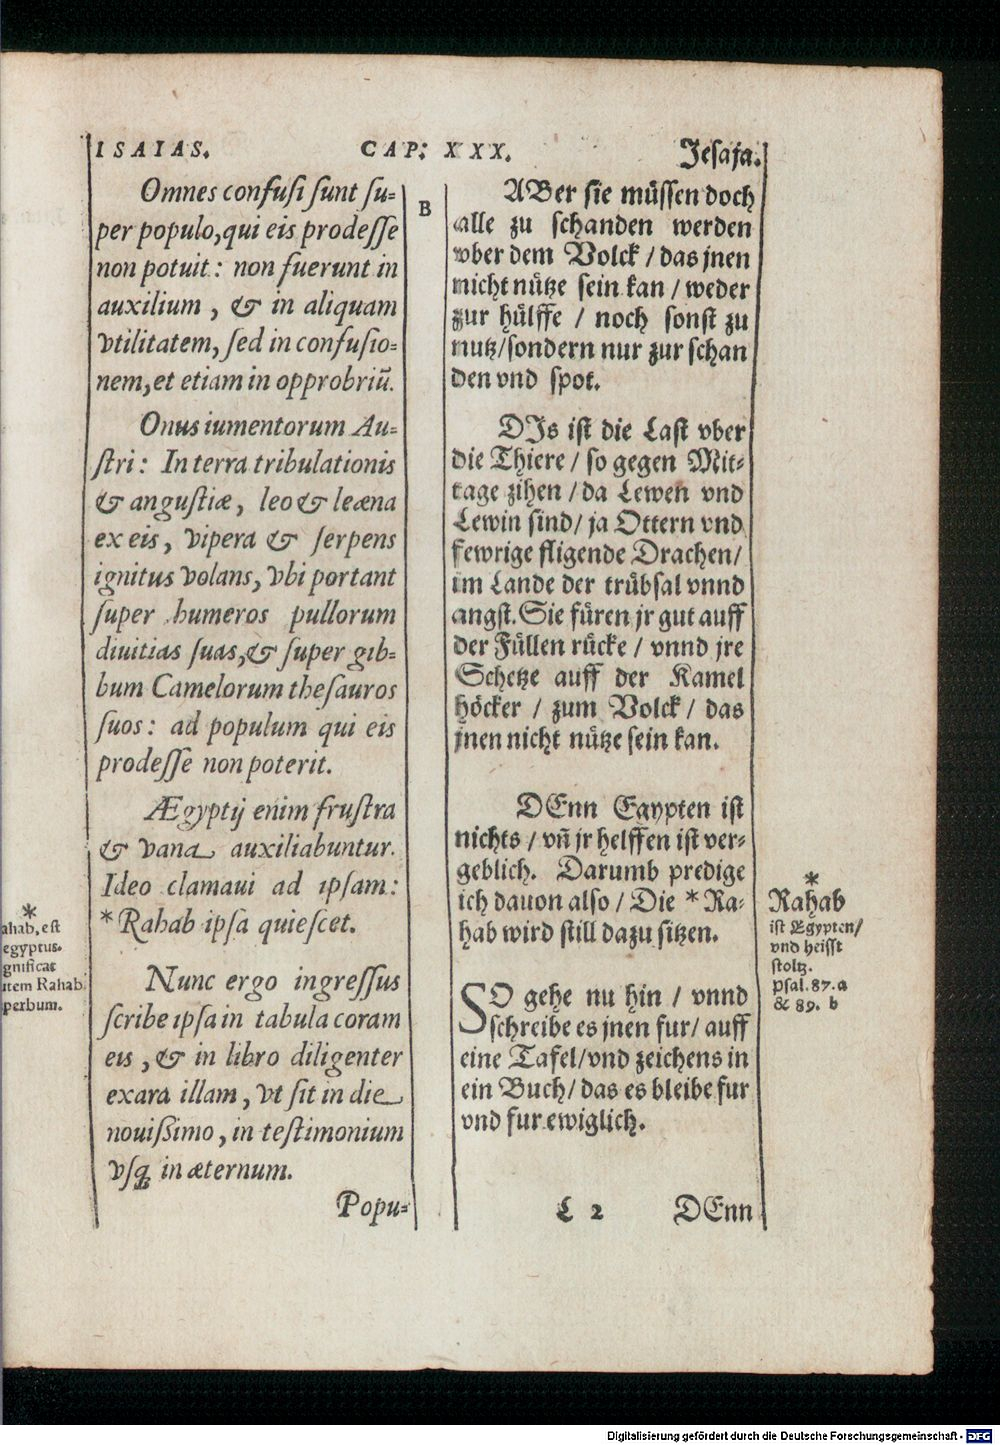 ISAIAS. CAP: XXX. Jesaja.
Omnes confusi sunt su-
per populo, qui eis prodesse
non potuit: non fuerunt in
auxilium, & in aliquam
vtilitatem, sed in confusio-
nem, et etiam in opprobriū.
Onus iumentorum Au-
stri: In terra tribulationis
& angustiæ, leo & leæna
ex eis, vipera & serpens
ignitus volans, vbi portant
super humeros pullorum
diuitias suas, & super gib-
bum Camelorum thesauros
suos: ad populum qui eis
prodesse non poterit.
Ægyptij enim frustra
& vana auxiliabuntur.
Ideo clamaui ad ipsam:
* Rahab ipsa quiescet.
Nunc ergo ingressus
scribe ipsa in tabula coram
eis, & in libro diligenter
exara illam, vt sit in die
nouissimo, in testimonium
vsq; in æternum.
Popu-
*
ahab, est
egyptus.
gnificat
item Rahab
perbum.
B
ABer sie müssen doch
alle zu schanden werden
vber dem Volck / das jnen
nicht nütze sein kan / weder
zur hülffe / noch sonst zu
nutz / sondern nur zur schan
den vnd spot.
DIs ist die Last vber
die Thiere / so gegen Mit-
tage zihen / da Lewen vnd
Lewin sind / ja Ottern vnd
fewrige fligende Drachen /
im Lande der trübsal vnnd
angst. Sie füren jr gut auff
der Füllen rücke / vnnd jre
Schetze auff der Kamel
höcker / zum Volck / das
jnen nicht nütze sein kan.
DEnn Egypten ist
nichts / vñ jr helffen ist ver-
geblich. Darumb predige
ich dauon also / Die * Ra-
hab wird still dazu sitzen.
SO gehe nu hin / vnnd
schreibe es jnen fur / auff
eine Tafel / vnd zeichens in
ein Buch / das es bleibe fur
vnd fur ewiglich.
L 2 DEnn
*
Rahab
ist Egypten /
vnd heisst
stoltz.
Psal. 87. a
& 89. b
Digitalisierung gefördert durch die Deutsche Forschungsgemeinschaft - DFG